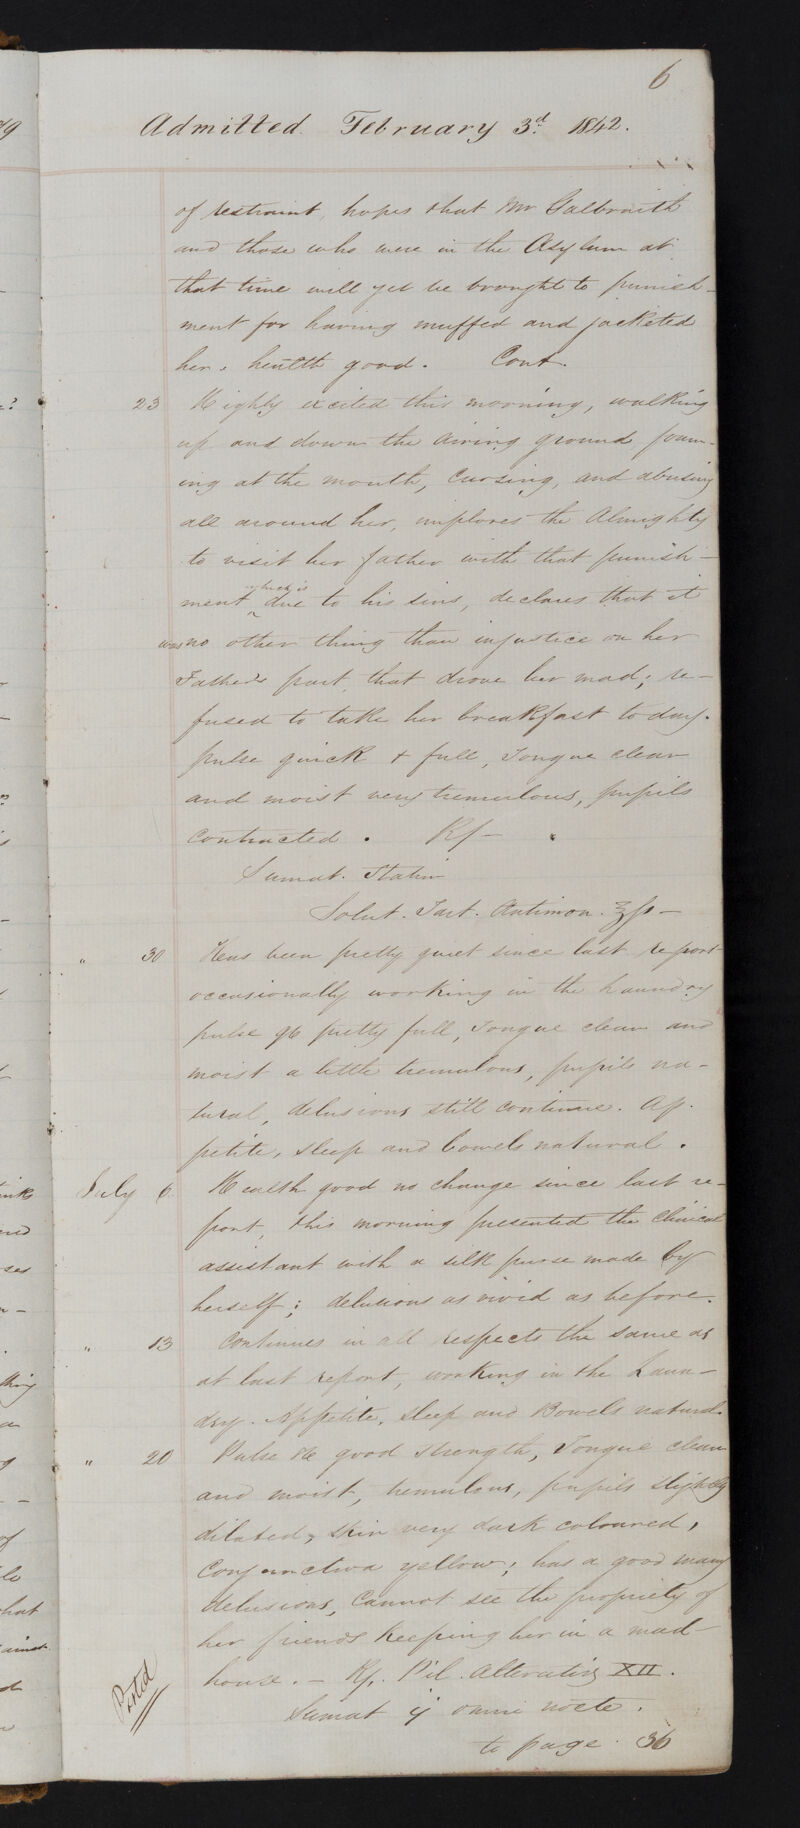 6
Admitted February 3d 1842.
of restraint, hopes that Mr Galbraith
and those who were in the Asylum at
that time will yet be brought to punish-
ment for having muffed and jacketed
her, health good. Cont.
23 Highly excited this morning, walking
up and down the Airing ground foam-
ing at the mouth, cursing, and abusing
all around her, implores the Almighty
to visit her father with that punish-
ment which is due to his sins, declares that it
was no other thing than injustice on her
Father's part that drove her mad; re-
fused to take her breakfast to day.
pulse quick + full, Tongue clean
and moist very tremulous, pupils
contracted. R/-
Sumat. Statim
Solut. Tart. Antimon. ℥ſs-
" 30 Has been pretty quiet since last report
occasionally working in the Laundry
pulse 96 pretty full, Tongue clean and
moist a little tremulous, pupils na-
tural, delusions still continue. Ap-
petite, sleep and bowels natural.
July 6 Health good no change since last re-
port, this morning presented the clinical
assistant with a silk purse made by
herself; delusions as vivid as before.
" 13 Continues in all respects the same as
at last report, working in the Laun-
dry. Appetite, sleep and Bowels natural.
" 20 Pulse good strength, Tongue clean
and moist, tremulous, pupils slightly
dilated, skin very dark coloured,
Conjunctiva yellow; has a good many
delusions, Cannot see the propriety of
her friends keeping her in a mad
house. - R/. Pil. Alterativ XII.
Sumat ij omni nocte.
to page 36
Posted